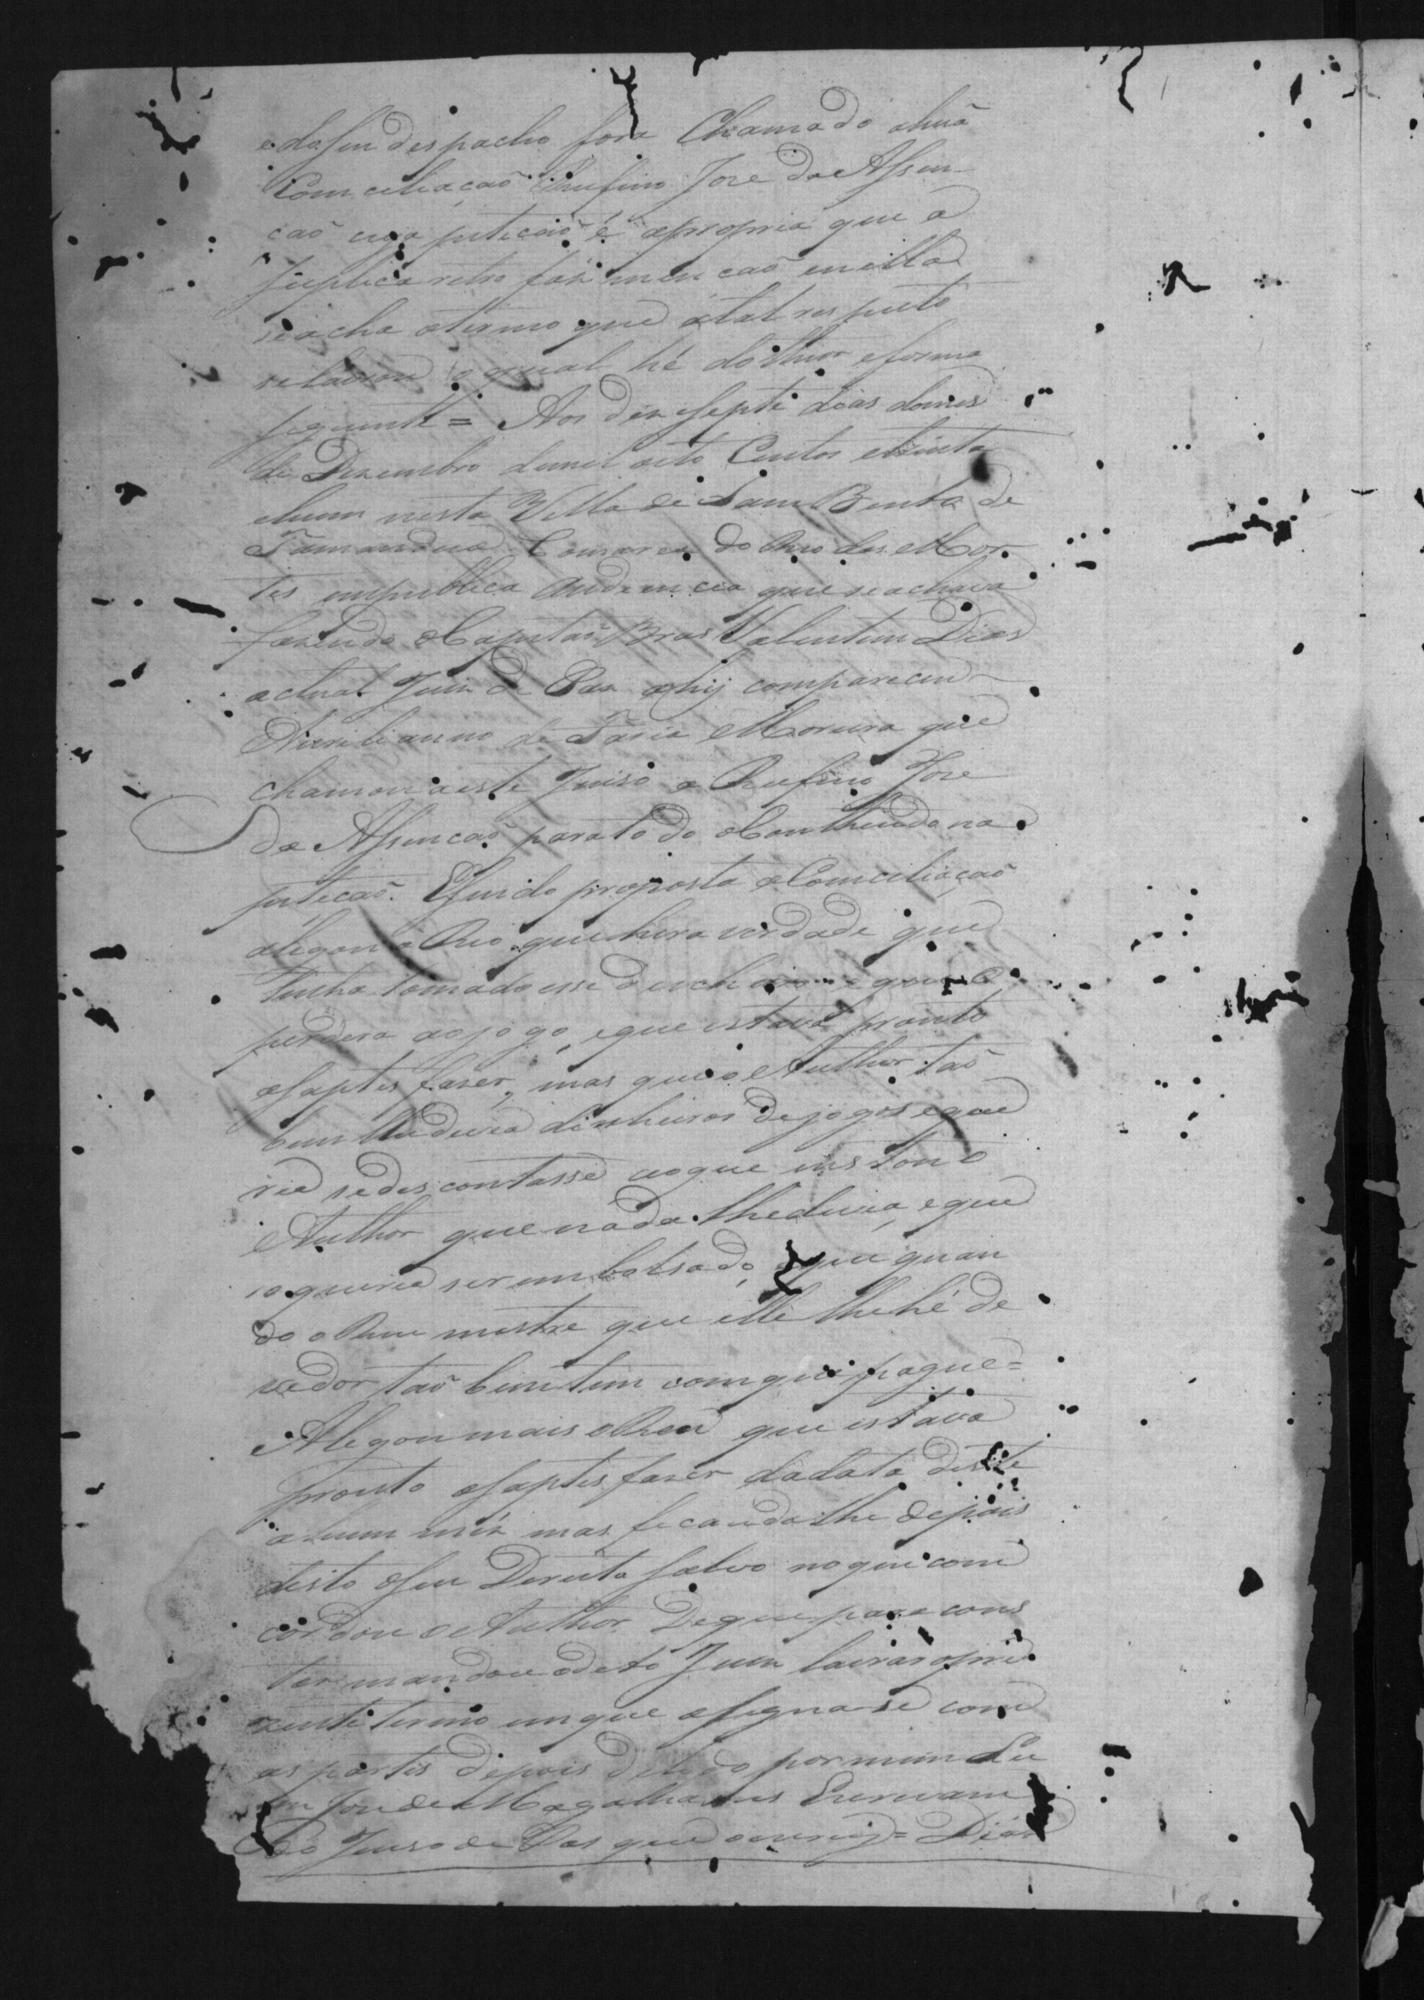 e do seu despacho fora Chamado ahuã
Comciliação Rufino Jose da Assen-
caõ cuja peticaõ é apropria que a
suplica retro faz mencaõ e nella
se acha otermo que atal respeito
relacion o qual hé do theor eforma
seguinte = Aos dez esepte dias domes
de Dezembro demil oito Centos etrinta
ehum nesta Villa de Sam Bento de
Tamandua Comarca do Rio das Mor
tes empublica Audiencia que se achava
fazendo o Capitaõ Bras Valentim Dias
actual Juiz de Paz ahij compareceu
de Faria Moreira que
chamou aeste Juiso a Rufino Jose
da Assencaõ para to do o Contheudo na
peticaõ. Esendo proposta a Comciliaçaõ
alegou o Reo que hera verdade que
tinha tomado esse dinheiro e que o
perdera aojogo, eque estava pronto
asaptisfazer, mas que o Author taõ
bem lhe devia dinheiros dejogos eque
ria sedescontasse aoque instou o
Author que nada lhedevia, eque
so queria ser embolsado, e que quan
do o Reu mostre que elle lhe hé de
vedor taõ bem tem comque pague =
Alegou mais o Reu que estava
pronto asaptisfazer dadata deste
a hum mêz mas ficando lhe depois
disto oseu Dereito salvo noque com
cordou o Author Deque para cons
tar mandou odito Juiz lavrar opre
zente termo em que asigna-se com
as partes depois delido por mim Lu
Jose de Magalhaens Escrivam
do Juiso de Pas que oescrevij = Dias